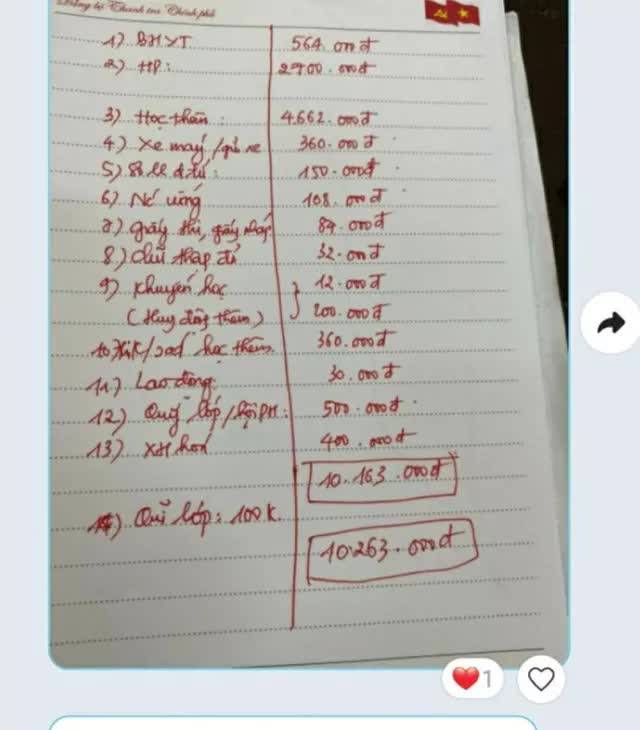 Đảng bộ Thanh tra Chính phủ
1) BHYT 564.000đ
2) HP: 2700.000đ
3) Học thêm: 4.662.000đ
4) Xe máy/gửi xe 360.000đ
5) Sổ LL đ.tử: 150.000đ
6) Nc' uống 108.000đ
7) giấy thi, giấy nháp 84.000đ
8) chữ thập đỏ 32.000đ
9) Khuyến học 12.000đ
(Huy động thêm) 200.000đ
10 học thêm 360.000đ
11) Lao động 30.000đ
12) Quỹ lớp/hội PH: 500.000đ
13) XH hoá 400.000đ
10.163.000đ
14) Quĩ lớp: 100K.
10.263.000đ
1